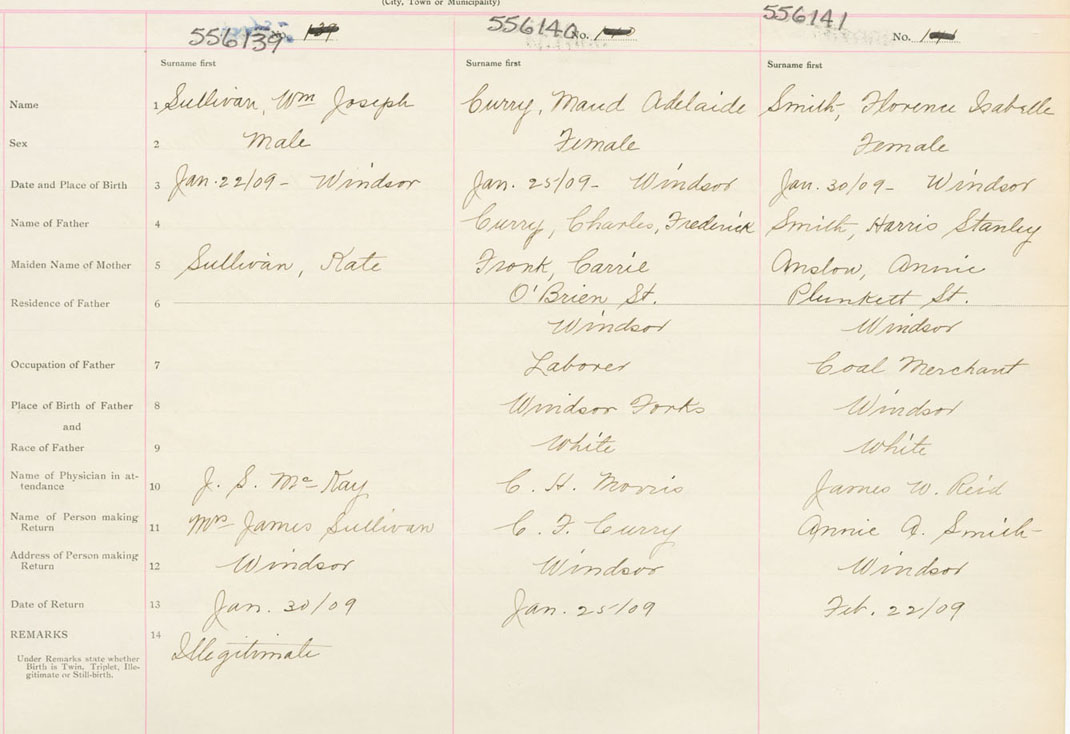 (City, Town or Municipality)
556139 No. 139
556140 No. 140
556141 No. 141
Surname first Surname first Surname first
Name 1 Sullivan, Wm Joseph Curry, Maud Adelaide Smith, Florence Isabelle
Sex 2 Male Female Female
Date and Place of Birth 3 Jan. 22/09 - Windsor Jan. 25/09 - Windsor Jan. 30/09 - Windsor
Name of Father 4 Curry, Charles, Frederick Smith, Harris Stanley
Maiden Name of Mother 5 Sullivan, Kate Fronk, Carrie Anslow, Annie
O'Brien St. Plunkett St.
Residence of Father 6
Windsor Windsor
Occupation of Father 7 Laborer Coal Merchant
Place of Birth of Father 8 Windsor Forks Windsor
and
Race of Father 9 White White
Name of Physician in at-
tendance 10 J. S. McKay C. H. Morris James W. Reid
Name of Person making
Return 11 Mrs James Sullivan C. F. Curry Annie A. Smith
Address of Person making
Return 12 Windsor Windsor Windsor
Date of Return 13 Jan. 30/09 Jan. 25/09 Feb. 22/09
REMARKS 14 Illegitimate
Under Remarks state whether
Birth is Twin, Triplet, Ille-
gitimate or Still-birth.